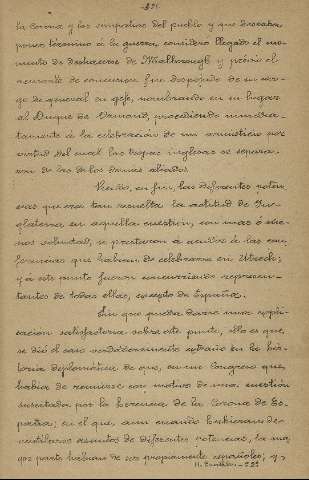 la Corona y las simpatías del pueblo y que deseaba
poner término á la guerra, consideró llegado el mo-
mento de deshacerse de Malborough y prévio el
de concusion fue despojado de su car-
go de general en gefe, nombrando en su lugar
al Duque de Ormond, procediendo inmedia-
tamente á la celebración de un armisticio por
virtud del cual las tropas inglesas se separa-
ron de las de los demas aliados.
Viendo, en fin, las diferentes poten-
cias que era tan resuelta la actitud de In-
glaterra en aquella cuestión, con mas ó me-
nos voluntad, se prestaron á acudir á las con-
ferencias que habian de celebrarse en Utrech;
y á este punto fueron concurriendo represen-
tantes de todas ellas, excepto de España.
Sin que pueda darse una expli-
cación satisfactoria sobre este punto, ello es que,
se dió el caso verdaderamente extraño en la his-
toria diplomática de que, en un Congreso que
habia de reunirse con motivo de una cuestión
suscitada por la herencia de la Corona de Es-
paña; en el que, aun cuando hubieran de
ventilarse asuntos de diferentes potencias, la ma-
yor parte habian de ser propiamente españoles; y,